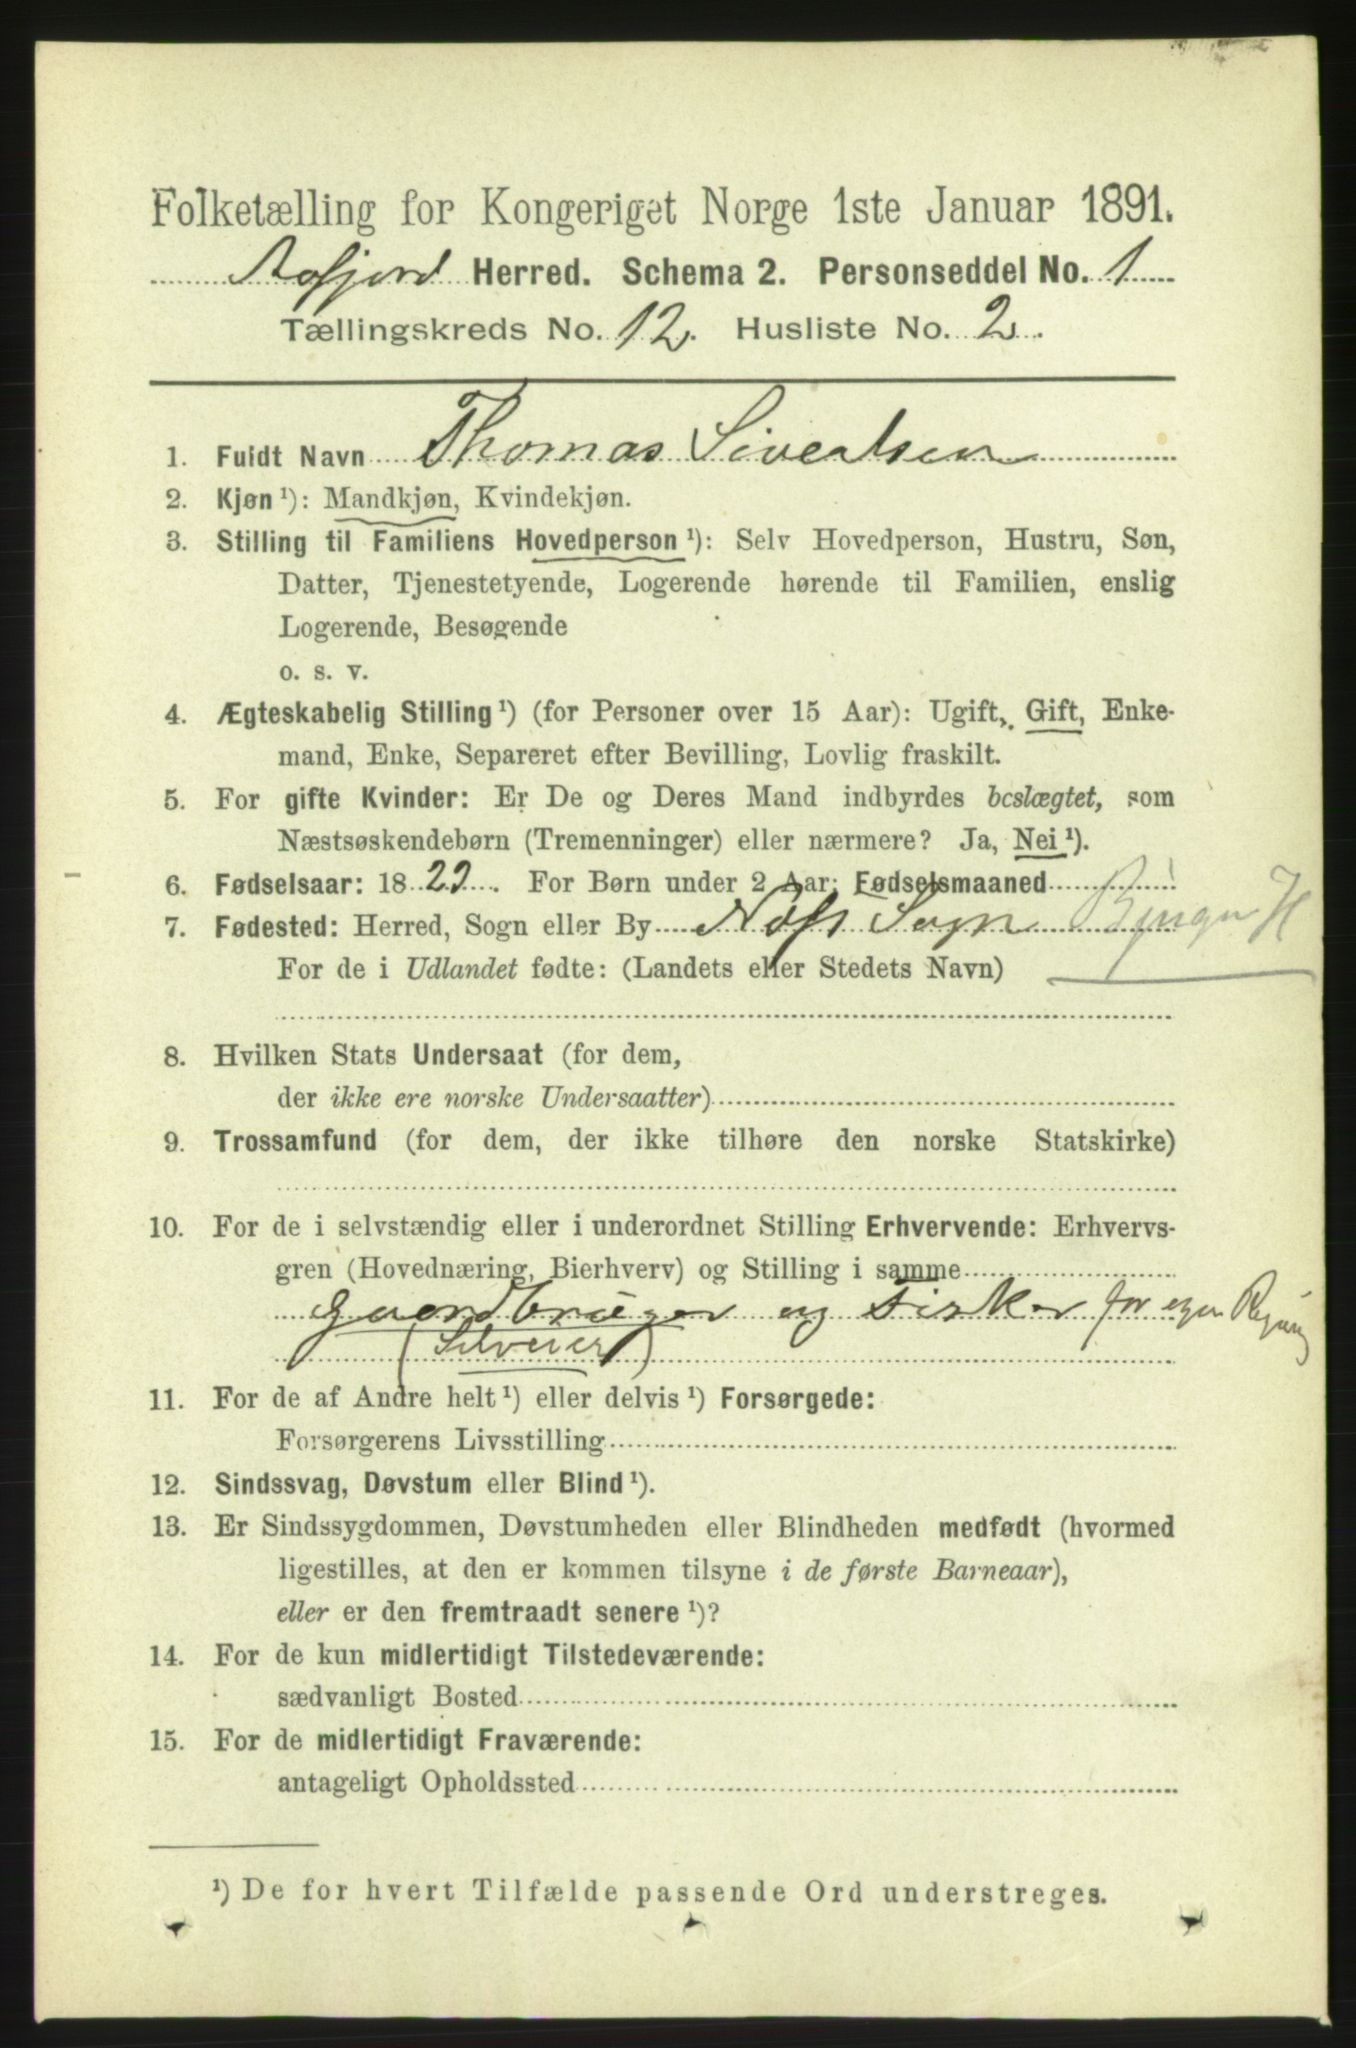 Folketælling for Kongeriget Norge 1ste Januar 1891.
Aafjord Herred. Schema 2. Personseddel No. 1
Tællingskreds No. 12. Husliste No. 2.
1. Fuldt Navn Thomas Sivertsen
2. Kjøn ¹): Mandkjøn, Kvindekjøn.
3. Stilling til Familiens Hovedperson ¹): Selv Hovedperson, Hustru, Søn,
Datter, Tjenestetyende, Logerende hørende til Familien, enslig
Logerende, Besøgende
o. s. v.
4. Ægteskabelig Stilling ¹) (for Personer over 15 Aar): Ugift, Gift, Enke-
mand, Enke, Separeret efter Bevilling, Lovlig fraskilt.
5. For gifte Kvinder: Er De og Deres Mand indbyrdes beslægtet, som
Næstsøskendebørn (Tremenninger) eller nærmere? Ja, Nei ¹).
6. Fødselsaar: 18 . For Børn under 2 Aar: Fødselsmaaned
7. Fødested: Herred, Sogn eller By Næss Sogn H
For de i Udlandet fødte: (Landets eller Stedets Navn)
8. Hvilken Stats Undersaat (for dem,
der ikke ere norske Undersaatter)
9. Trossamfund (for dem, der ikke tilhøre den norske Statskirke)
10. For de i selvstændig eller i underordnet Stilling Erhvervende: Erhvervs-
gren (Hovednæring, Bierhverv) og Stilling i samme
Gaardbruger og Fisker for egen Regning
(Selveier)
11. For de af Andre helt ¹) eller delvis ¹) Forsørgede:
Forsørgerens Livsstilling
12. Sindssvag, Døvstum eller Blind ¹).
13. Er Sindssygdommen, Døvstumheden eller Blindheden medfødt (hvormed
ligestilles, at den er kommen tilsyne i de første Barneaar),
eller er den fremtraadt senere ¹)?
14. For de kun midlertidigt Tilstedeværende:
sædvanligt Bosted
15. For de midlertidigt Fraværende:
antageligt Opholdssted
¹) De for hvert Tilfælde passende Ord understreges.